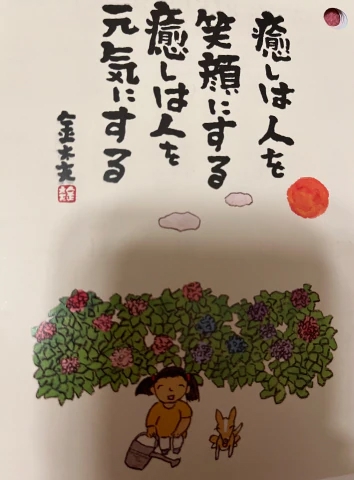 癒しは人を
笑顔にする
癒しは人を
元気にする